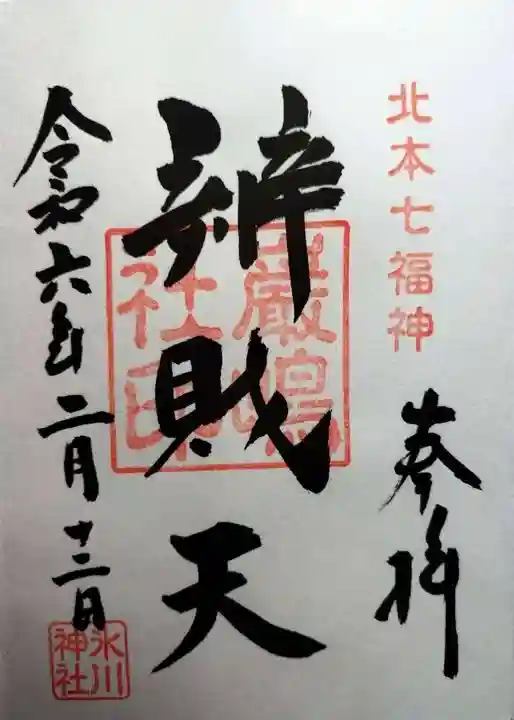 北本七福神
奉拝
辨財天
嚴嶋社印
令和六年二月十二日
氷川神社